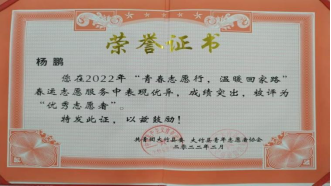 荣誉证书
杨鹏
您在2022年“青春志愿行，温暖回家路”
春运志愿服务中表现优异，成绩突出，被评为
“优秀志愿者”。
特发此证，以兹鼓励！
共青团大竹县委 大竹县青年志愿者协会
二〇二二年二月